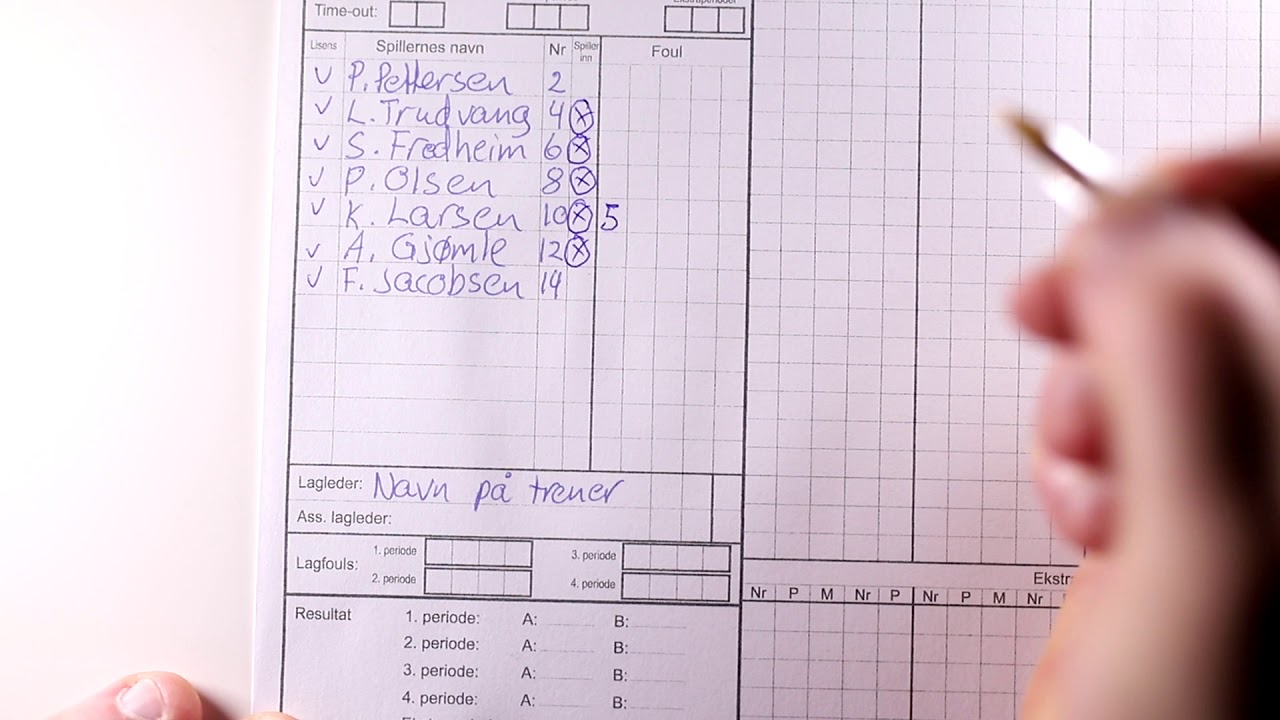 Time-out:
Lisens Spillernes navn Nr Spiller inn Foul
V P. Pettersen 2
V L. Trudvang 4 X
V S. Fredheim 6 X
V P. Olsen 8 X
V K. Larsen 10 X 5
V A. Gjømle 12 X
V F. Jacobsen 14
Lagleder: Navn på trener
Ass. lagleder:
Lagfouls: 1. periode 3. periode
2. periode 4. periode
Ekstr
Nr P M Nr P Nr P M Nr
Resultat 1. periode: A: B:
2. periode: A: B:
3. periode: A: B:
4. periode: A: B: